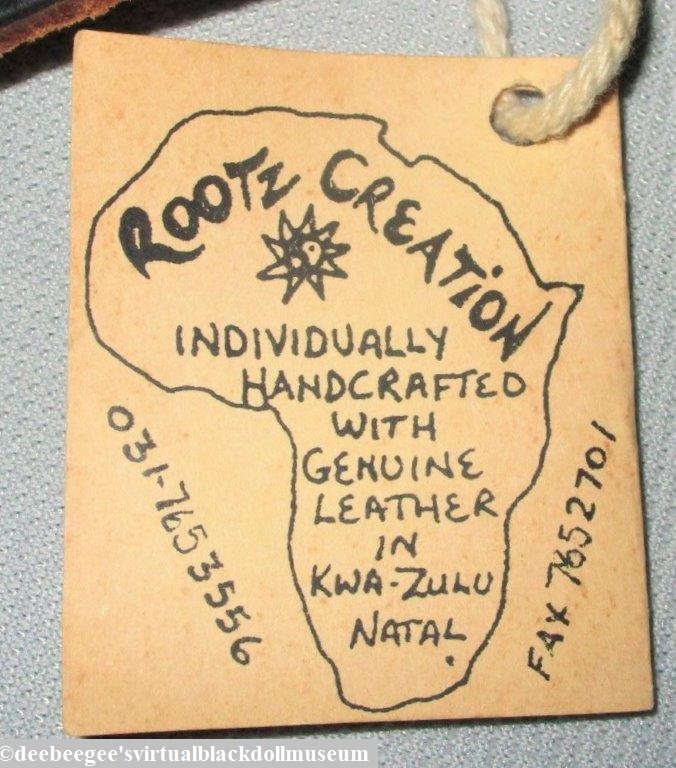 ROOTZ CREATION
INDIVIDUALLY
HANDCRAFTED
WITH
GENUINE
LEATHER
IN
KWA-ZULU
NATAL.
031-7653556
FAX 7652701
©deebeegee'svirtualblackdollmuseum